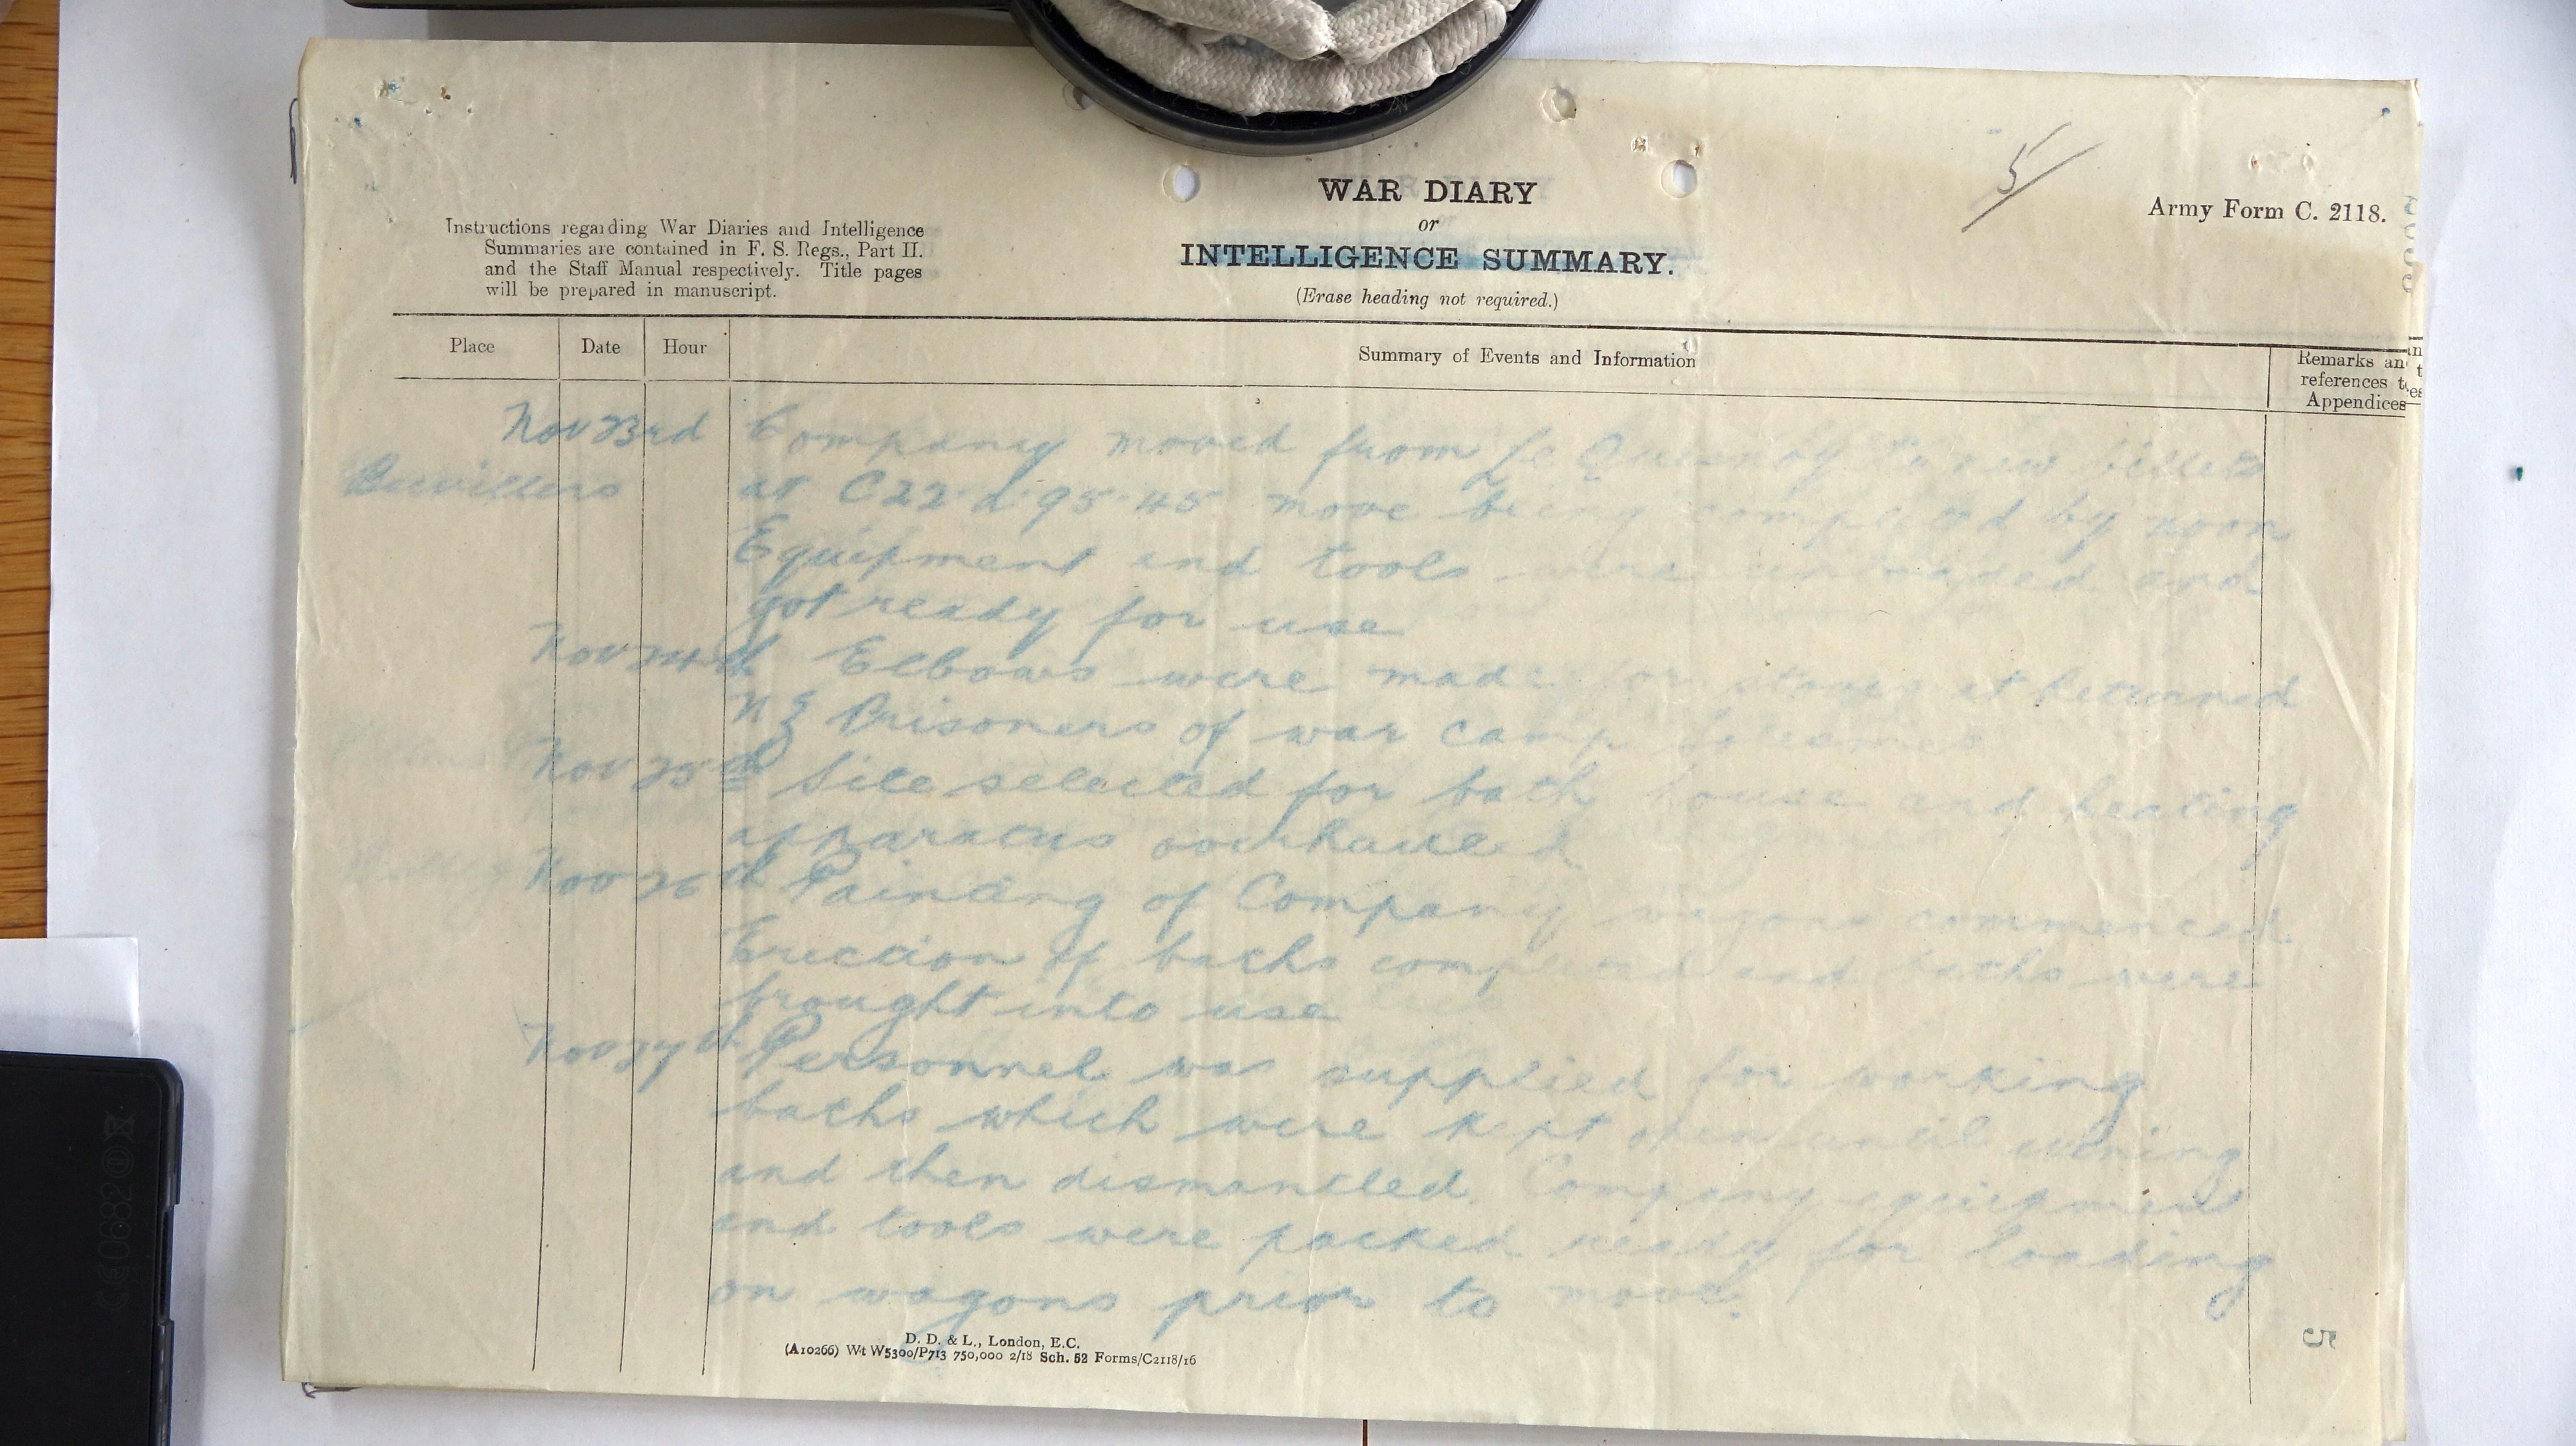 5/
WAR DIARY
or
INTELLIGENCE SUMMARY.
(Erase heading not required.)
Army Form C. 2118.
Instructions regarding War Diaries and Intelligence
Summaries are contained in F. S. Regs., Part II.
and the Staff Manual respectively. Title pages
will be prepared in manuscript.
Place Date Hour Summary of Events and Information Remarks and
references to
Appendices
Nov 23rd Company moved from Le Quesnoy to new billets
at C22.d.95.45 move being completed by noon
Equipment and tools were unloaded and
got ready for use
Nov 24th Elbows were made for stoves at Returned
Prisoners of war camp Solesmes
Nov 25th Site selected for bath house and heating
apparatus overhauled
Nov 26th Painting of Company wagons commenced
Erection of baths completed and baths were
brought into use
Nov 27th Personnel was supplied for working
baths which were kept open until evening
and then dismantled. Company equipment
and tools were packed ready for loading
on wagons prior to move.
D. D. & L., London, E.C.
(A10266) Wt W5300/P713 750,000 2/18 Sch. 52 Forms/C2118/16